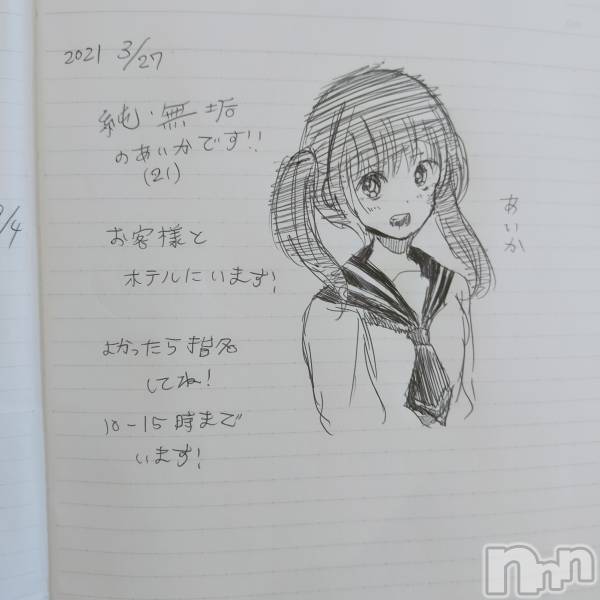 2021 3/27
純・無垢
のあいかです!!
(21)
お客様と
ホテルにいます!
よかったら指名
してね!
10-15時まで
います!
あいか
9/4
nnn